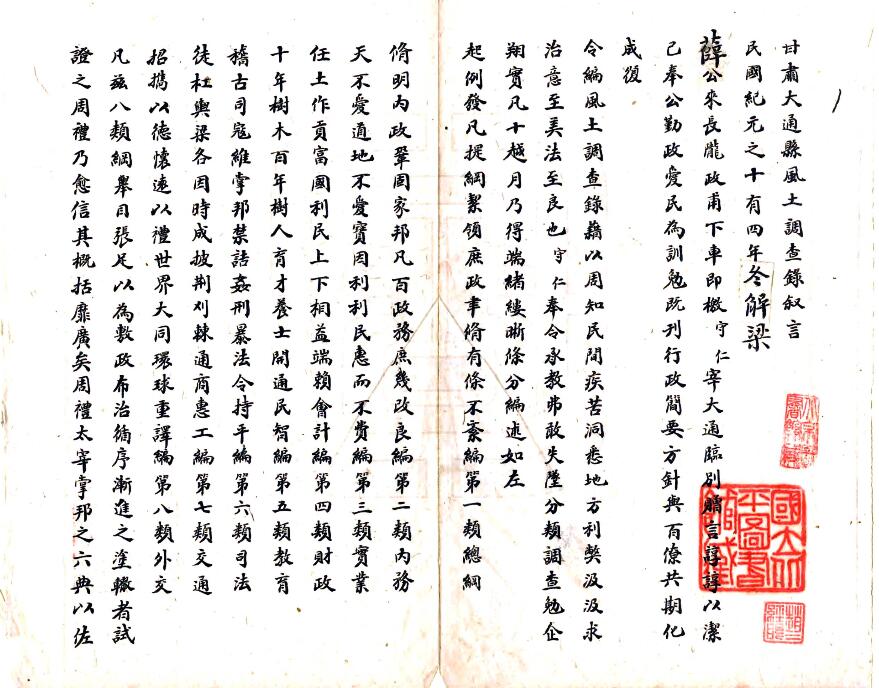 甘肅大通縣風土調查錄叙言
民國紀元之十有四年冬解梁
薛公來長隴政甫下車即檄守仁宰大通臨別贈言諄諄以潔
己奉公勤政愛民為訓勉旣刊行政簡要方針與百僚共期化
成復
令編風土調查錄藉以周知民間疾苦洞悉地方利弊汲汲求
治意至美法至良也守仁奉令承教弗敢失墜分類調查勉企
翔實凡十越月乃得端緒縷晰條分編述如左
起例發凡提綱絜領庶政聿脩有條不紊編第一類總綱
脩明內政鞏固家邦凡百政務庶幾改良編第二類內務
天不愛道地不愛寶因利利民惠而不費編第三類實業
任土作貢富國利民上下相益端賴會計編第四類財政
十年樹木百年樹人育才養士開通民智編第五類教育
稽古司寇維掌邦禁詰姦刑暴法令持平編第六類司法
徒杠輿梁各因時成披荆刈棘通商惠工編第七類交通
招携以德懷遠以禮世界大同環球重譯編第八類外交
凡茲八類綱舉目張足以為敷政布治循序漸進之塗轍者試
證之周禮乃愈信其概括靡廣矣周禮太宰掌邦之六典以佐
國立北平圖書館藏